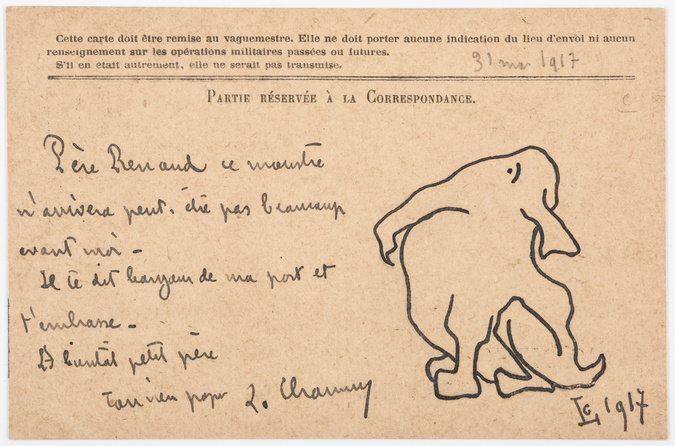 Cette carte doit être remise au vaguemestre. Elle ne doit porter aucune indication du lieu d'envoi ni aucun
renseignement sur les opérations militaires passées ou futures.
S'il en était autrement, elle ne serait pas transmise.
31 mai 1917
PARTIE RÉSERVÉE À LA CORRESPONDANCE.
C
Père Renaud ce monstre
n'arrivera peut. être pas beaucoup
avant moi -
Il te dit bonjour de ma part et
t'embrasse -
A bientôt petit père
Ton vieux papa
1917